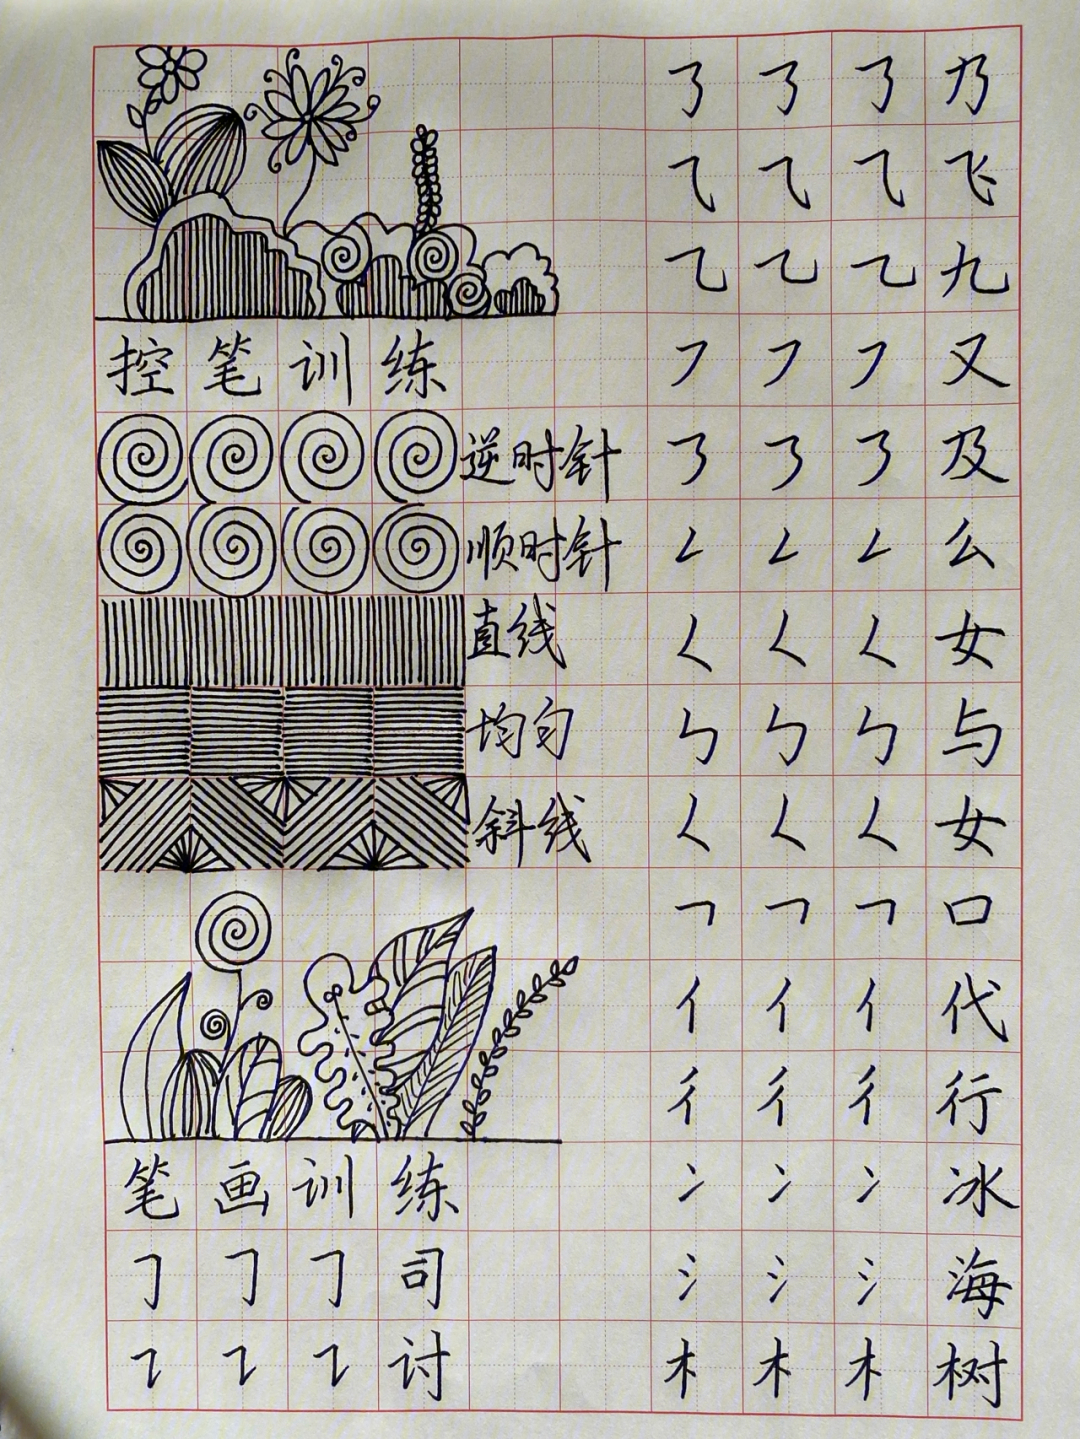 控笔训练
逆时针
顺时针
直线
均匀
斜线
笔画训练
𠃌 𠃌 𠃌 司
㇊ ㇊ ㇊ 讨
㇡ ㇡ ㇡ 乃
⺄ ⺄ ⺄ 飞
㇈ ㇈ ㇈ 九
㇇ ㇇ ㇇ 又
㇋ ㇋ ㇋ 及
㇜ ㇜ ㇜ 么
㇛ ㇛ ㇛ 女
㇉ ㇉ ㇉ 与
㇛ ㇛ ㇛ 女
𠃍 𠃍 𠃍 口
亻 亻 亻 代
彳 彳 彳 行
冫 冫 冫 冰
氵 氵 氵 海
木 木 木 树